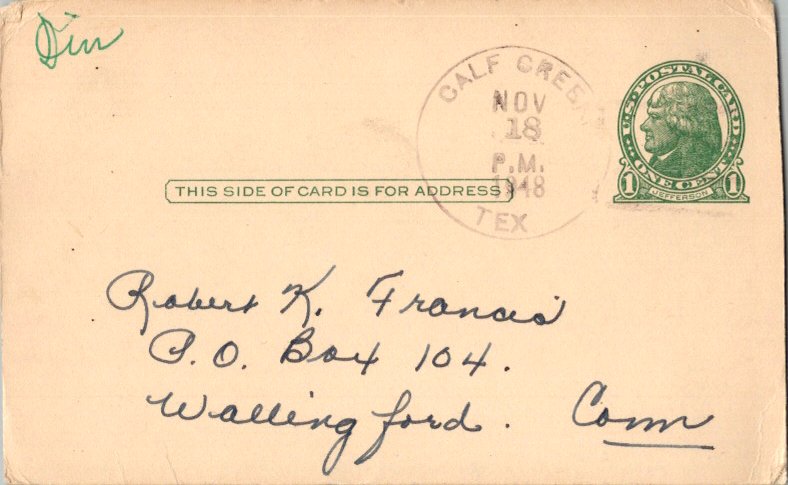 CALF CREEK
NOV
18
P.M.
1948
TEX
U.S. POSTAL CARD
ONE CENT
1 JEFFERSON 1
THIS SIDE OF CARD IS FOR ADDRESS
Robert K. Francis
P.O. Box 104.
Wallingford. Conn